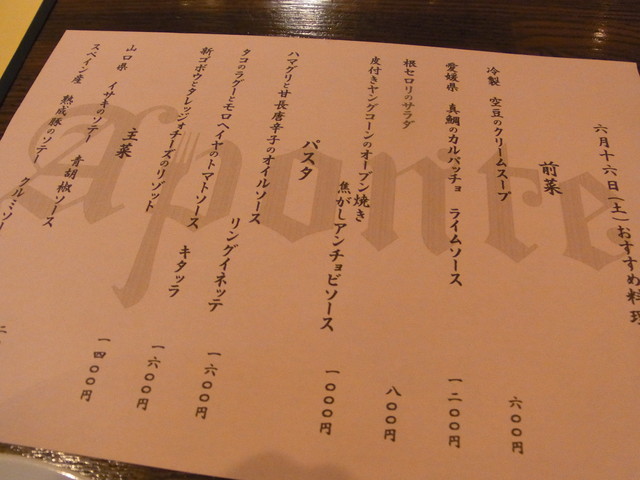 六月十六日(土)おすすめ料理
前菜
冷製 空豆のクリームスープ 六〇〇円
愛媛県 真鯛のカルパッチョ ライムソース 一二〇〇円
根セロリのサラダ 八〇〇円
皮付きヤングコーンのオーブン焼き
焦がしアンチョビソース 一〇〇〇円
パスタ
ハマグリと甘長唐辛子のオイルソース リングイネッテ 一六〇〇円
タコのラグーとモロヘイヤのトマトソース キタッラ 一六〇〇円
新ゴボウとタレッジォチーズのリゾット 一四〇〇円
主菜
山口県 イサキのソテー 青胡椒ソース
スペイン産 熟成豚のソテー クルミソー
Aponte